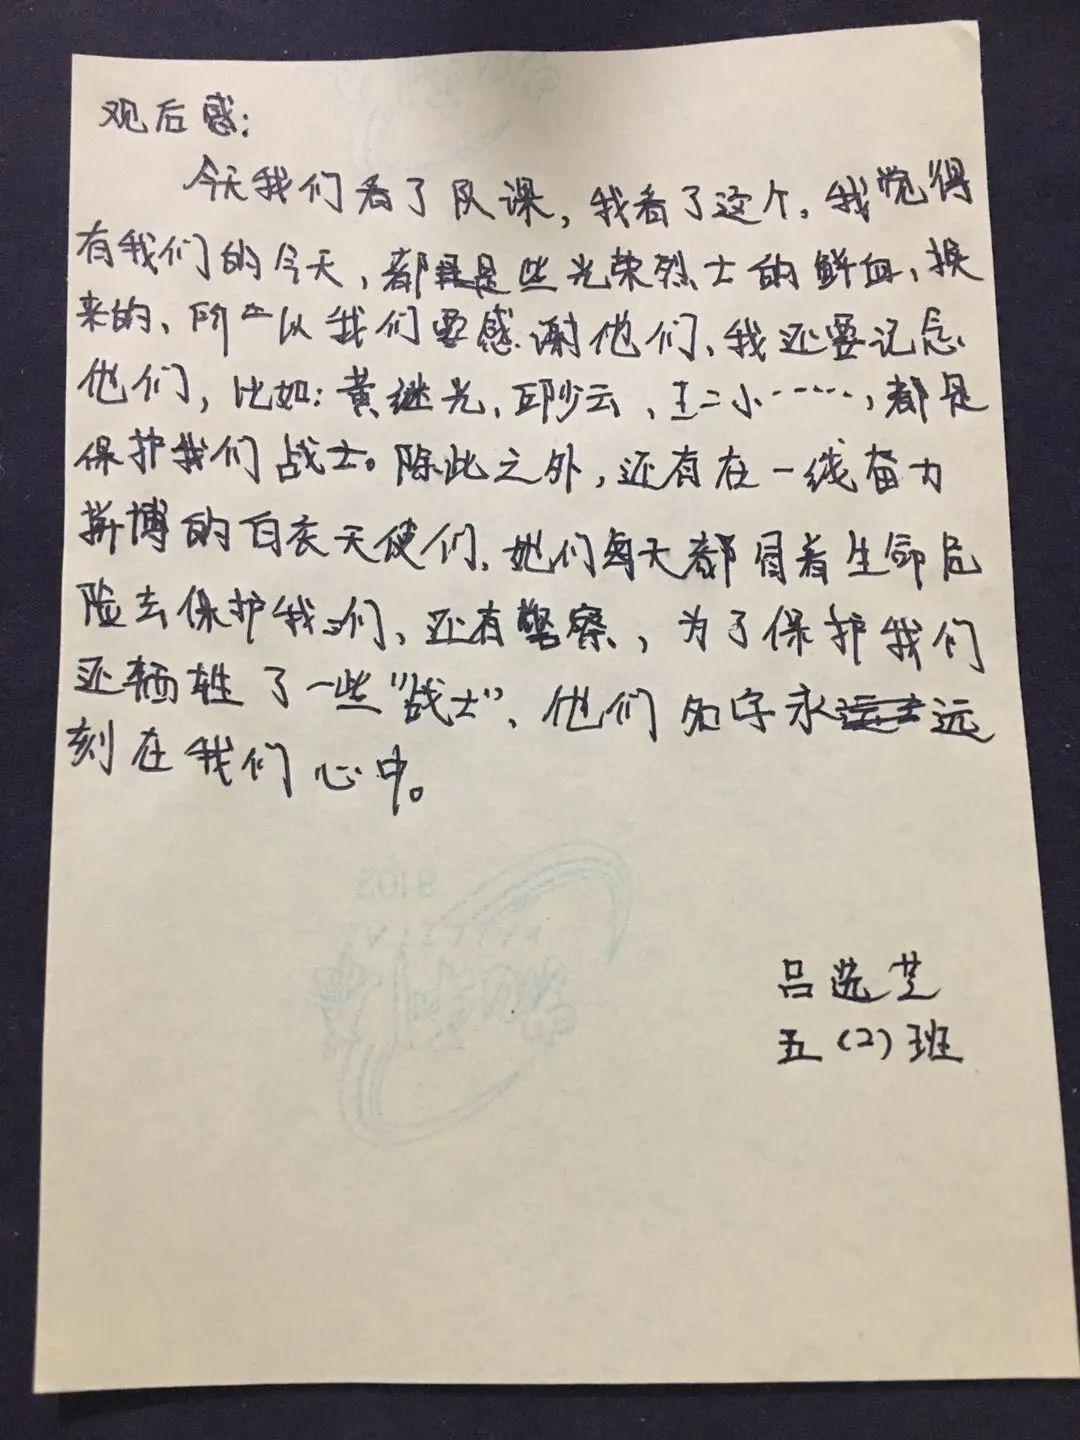 观后感:
今天我们看了队课,我看了这个。我觉得
有我们的今天,都是些光荣烈士的鲜血、换
来的、所以我们要感谢他们、我还要记念
他们,比如:黄继光、邱少云、王二小······,都是
保护我们战士。除此之外,还有在一线奋力
斯博的白衣天使们、她们每天都冒着生命危
险去保护我们、还有警察、为了保护我们
还牺牲了一些“战士”、他们名字永远
刻在我们心中。
吕选芝
五(2)班